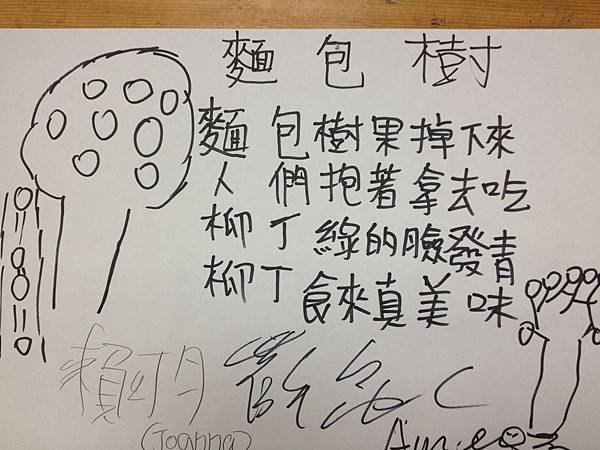 麵包樹
麵包樹果掉下來
人們抱著拿去吃
柳丁綠的臉發青
柳丁食來真美味
(Joanna)